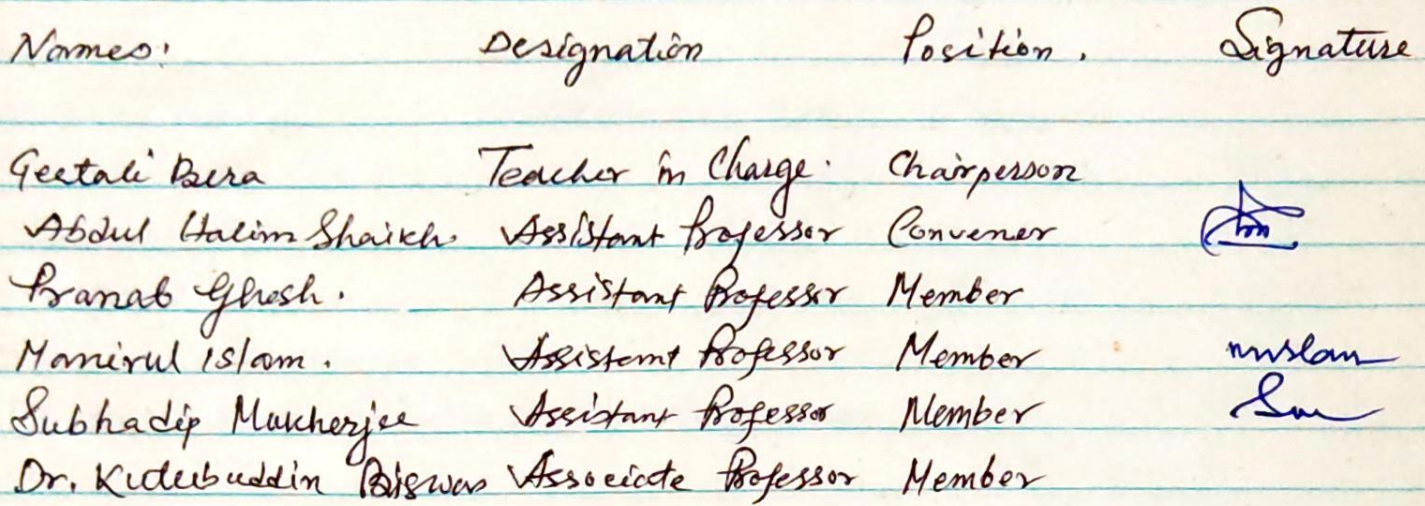 Names: Designation Position. Signature
Geetali Bera Teacher in Charge. Chairperson
Abdul Halim Shaikh. Assistant Professor Convener
Pranab Ghosh. Assistant Professor Member
Manirul Islam. Assistant Professor Member mislam
Subhadip Mukherjee Assistant Professor Member
Dr. Kutubuddin Biswas Associate Professor Member